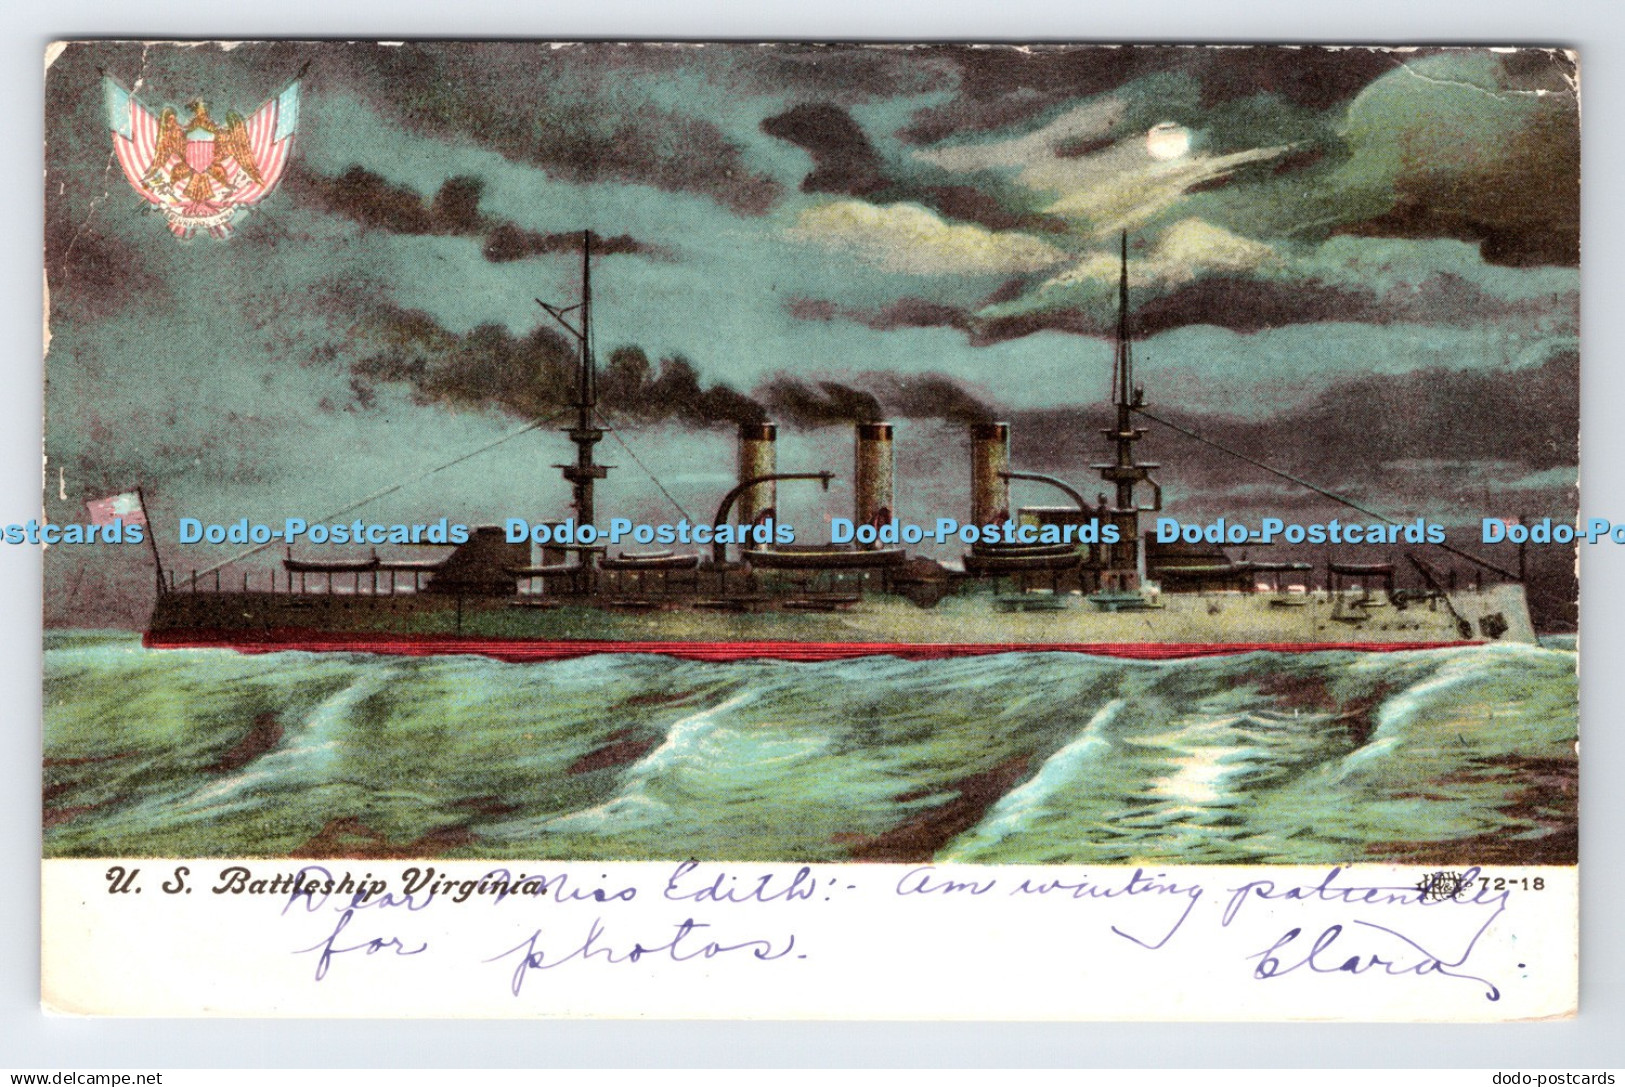 Dodo-Postcards Dodo-Postcards Dodo-Postcards Dodo-Postcards Dodo-Postcards Dodo-Postcards
U. S. Battleship Virginia.
72-18
Dear Miss Edith:- Am waiting patiently
for photos.
Clara.
delcampe.net
dodo-postcards